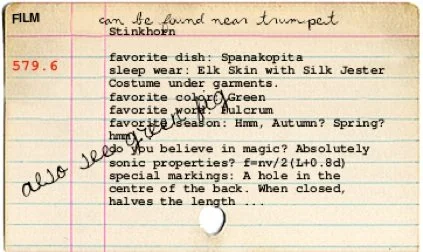 FILM
can be found near trumpet
Stinkhorn
579.6
favorite dish: Spanakopita
sleep wear: Elk Skin with Silk Jester
Costume under garments.
favorite color: Green
favorite word: Fulcrum
favorite season: Hmm, Autumn? Spring?
hmm
do you believe in magic? Absolutely
sonic properties? f=nv/2(L+0.8d)
special markings: A hole in the
centre of the back. When closed,
halves the length ...
also see green pig